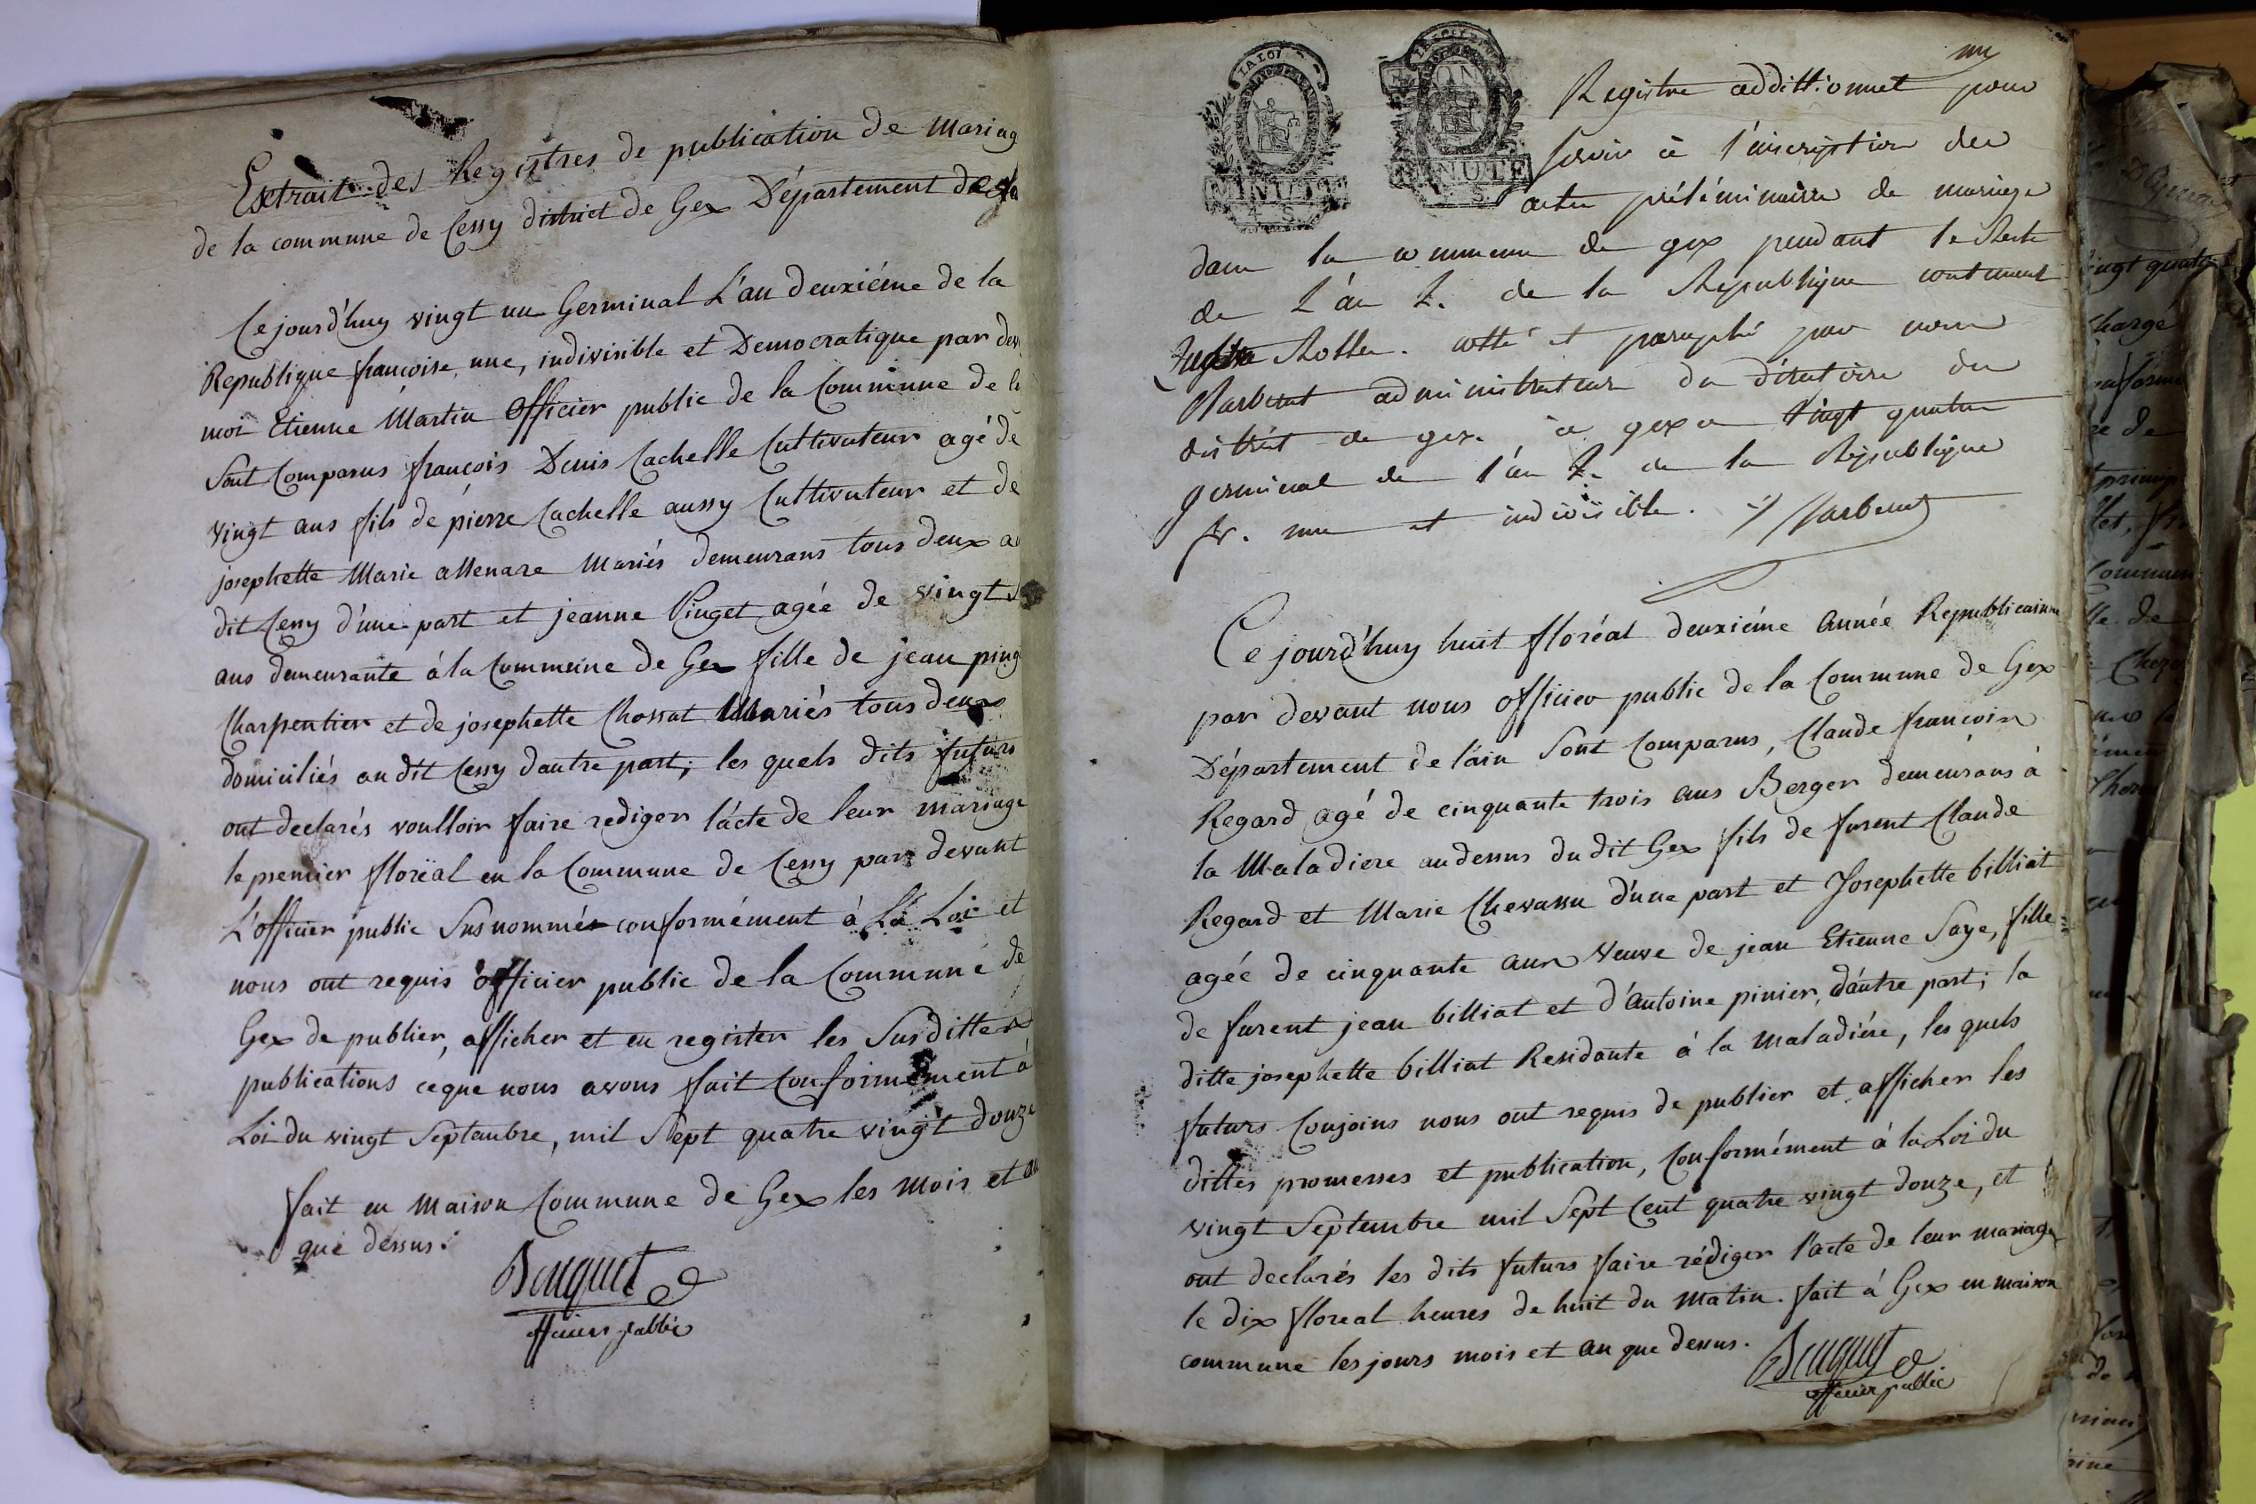 Extrait des Registres de publication de Mariag
de la commune de Cessy district de Gex Département de
Cejourd'huy vingt un Germinal L'an deuxiéme de la
Republique françoise, une, indivisible et Democratique par dev
moi Etienne Martin Officier public de la Commune de
Sont Comparus françois Denis Cachelle Cultivateur agé de
vingt ans fils de pierre Cachelle aussy Cultivateur et de
josephette Marie Mariés demeurans tous deux au
dit Cessy d'une part et jeanne Pinget agée de vingt
ans demeurante à la Commune de Gex fille de jean ping
Charpentier et de josephette Chossat Mariés tous deux
domiciliés au dit Cessy dautre part; les quels dits futurs
ont declarés voulloir faire rediger lácte de leur mariage
le premier floréal en la Commune de Cessy par devant
L'officier public Susnommés conformément à La Loi et
nous ont requis officier public de la Commune de
Gex de publier, afficher et en register les Susdittes
publications ceque nous avons fait Conformément à
Loi du vingt Septembre, mil Sept quatre vingt douze
fait en maison Commune de Gex les mois et an
que dessus.
Bouquet
officier public
LA LOI
MINUTE
MINUTE
Registre addittionnel pour
servir à l'inscription des
actes préliminaire de mariage
dans la commune de gex pendant le Reste
de L'án 2. de la République contenant
Rolles. cotté et paraphé par nous
administrateur du directoire du
district de gex. à gex ce vingt quatre
germinal de l'án 2. de la République
fr. une et indivisible.
Ce jourd'huy huit floréal deuxiéme Année Republicainne
par devant nous officier public de la Commune de Gex
Département de láin Sont Comparus, Claude françois
Regard agé de cinquante trois ans Berger demeurans à
la Maladiere audessus dudit Gex fils de furent Claude
Regard et Marie Chevassu d'une part et Josephette billiat
agée de cinquante ans Veuve de jean Etienne Saye, fille
de furent jean billiat et d'Antoine pinier, dáutre part; la
ditte josephette billiat Residante à la maladiére, les quels
futurs Conjoins nous ont requis de publier et afficher les
dittes promesses et publication, Conformément à la Loi du
vingt Septembre mil Sept Cent quatre vingt douze, et
ont declarés les dits futurs faire rédiger l'acte de leur mariage
le dix floreal heures de huit du matin. fait à Gex en maison
commune les jours mois et an que dessus.
Bouquet
officier public